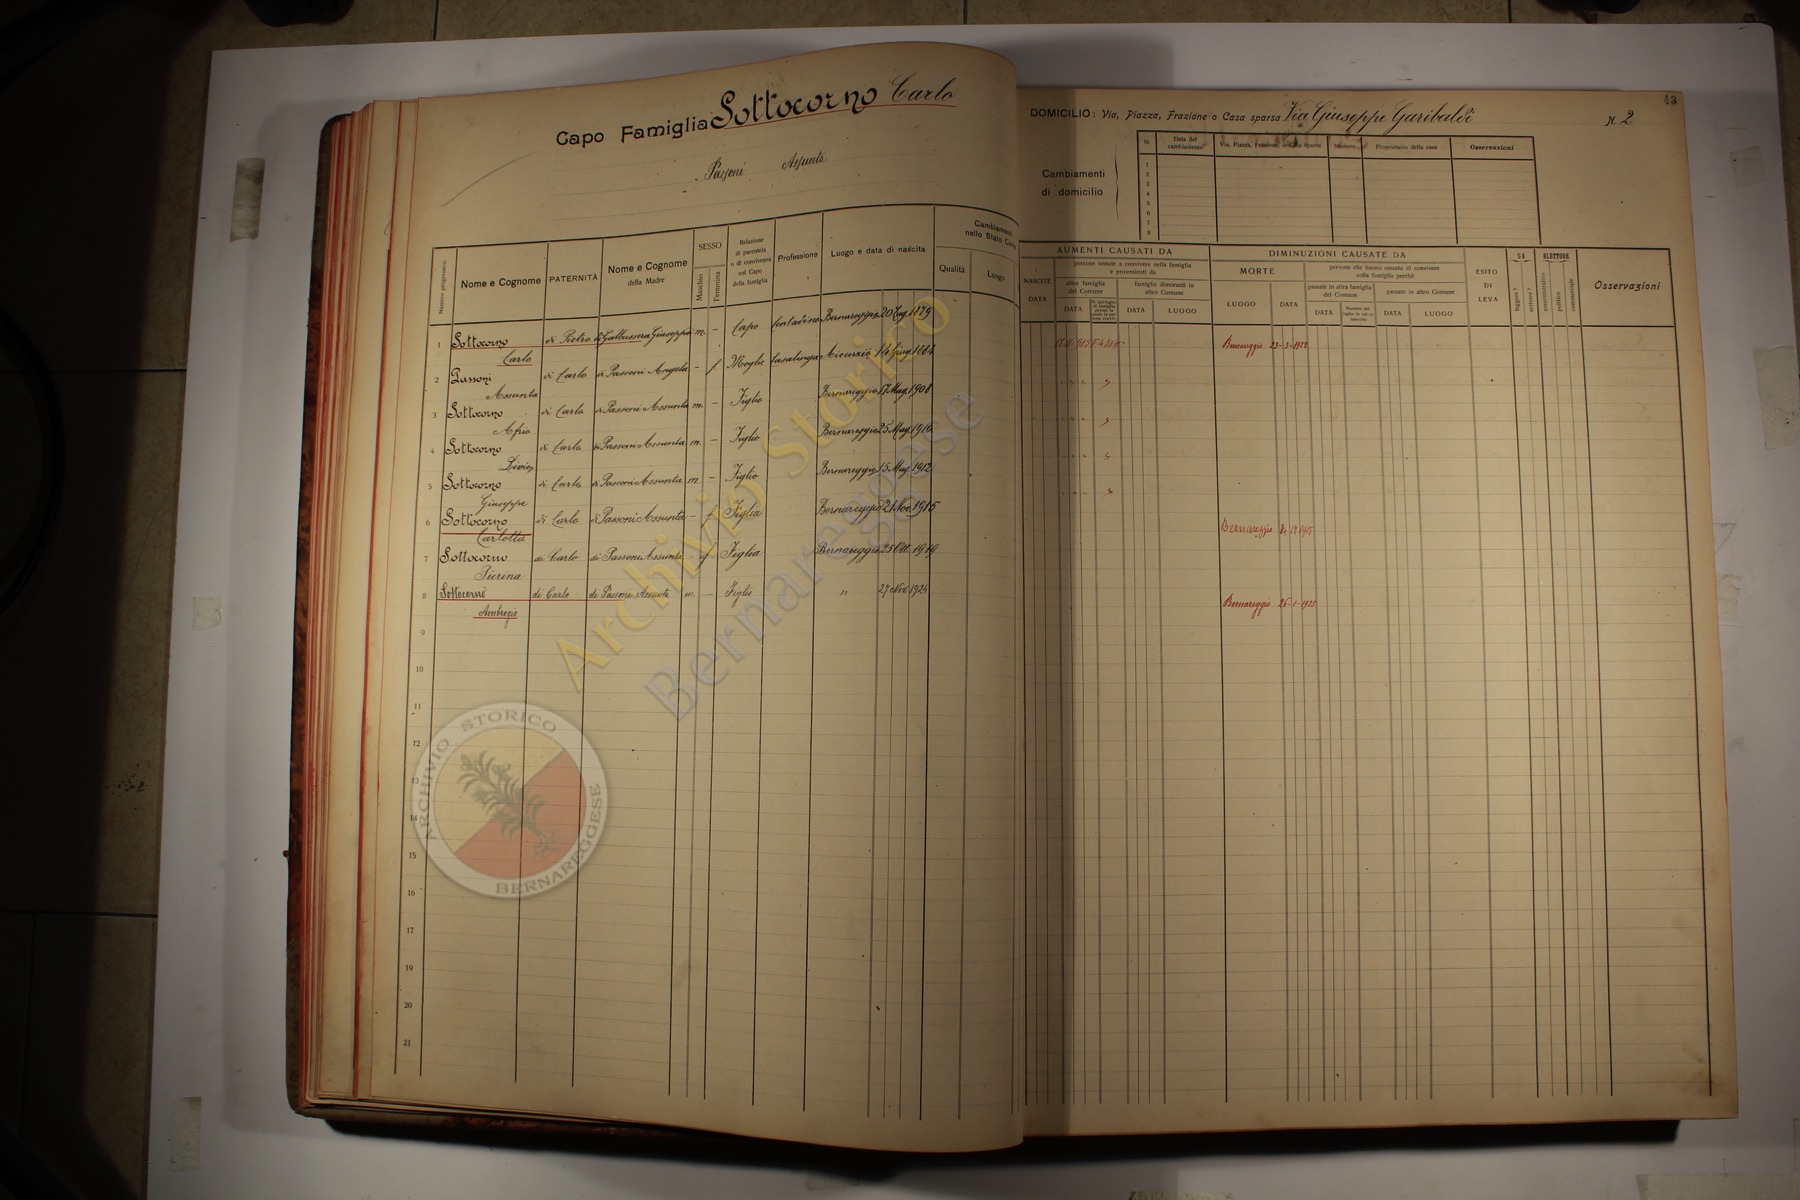 Capo Famiglia Sottocorno Carlo
Passoni Assunta
Numero progressivo
Nome e Cognome
PATERNITÀ
Nome e Cognome
della Madre
SESSO
Maschio
Femmina
Relazione
di parentela
o di convivenza
col Capo
della famiglia
Professione
Luogo e data di nascita
Cambiamenti
nello Stato Civile
Qualità
Luogo
1 Sottocorno di Pietro di Gallussera Giuseppa m. – Capo contadino Bernareggio 20 Lug. 1879
Carlo
2 Passoni di Carlo di Passoni Angela – f. Moglie casalinga Aicurzio 14 Giug. 1883
Assunta
3 Sottocorno di Carlo di Passoni Assunta m. – Figlio Bernareggio 17 Mag. 1908
Afrio
4 Sottocorno di Carlo di Passoni Assunta m. – Figlio Bernareggio 25 Mag. 1910
Livio
5 Sottocorno di Carlo di Passoni Assunta m. – Figlio Bernareggio 15 Mag. 1912
Giuseppe
6 Sottocorno di Carlo di Passoni Assunta – f. Figlia Bernareggio 21 Nov. 1915
Carlotta
7 Sottocorno di Carlo di Passoni Assunta – f Figlia Bernareggio 25 Ott. 1919
Pierina
8 Sottocorno di Carlo di Passoni Assunta m. – Figlio " 27 Nov. 1924
Ambrogio
9
10
11
12
13
14
15
16
17
18
19
20
21
43
DOMICILIO: Via, Piazza, Frazione o Casa sparsa Via Giuseppe Garibaldi N. 2
Cambiamenti
di domicilio
N.
Data del
cambiamento
Via, Piazza, Frazione, o Casa sparsa
Numero
Proprietario della casa
Osservazioni
1
2
3
4
5
6
7
8
AUMENTI CAUSATI DA
NASCITE
DATA
persone venute a convivere nella famiglia
e provenienti da
altra famiglia
del Comune
DATA
famiglie dimoranti in
altro Comune
DATA
LUOGO
DIMINUZIONI CAUSATE DA
MORTE
LUOGO
DATA
persone che hanno cessato di convivere
colla famiglia perchè
passate in altra famiglia
del Comune
DATA
passate in altro Comune
DATA
LUOGO
ESITO
DI
LEVA
SA
leggere?
scrivere?
ELETTORE
amministrativo
politico
commerciale
Osservazioni
Bernareggio
Bernareggio
Bernareggio 26-1-1925
Archivio Storico
Bernareggese
ARCHIVIO STORICO
BERNAREGGESE